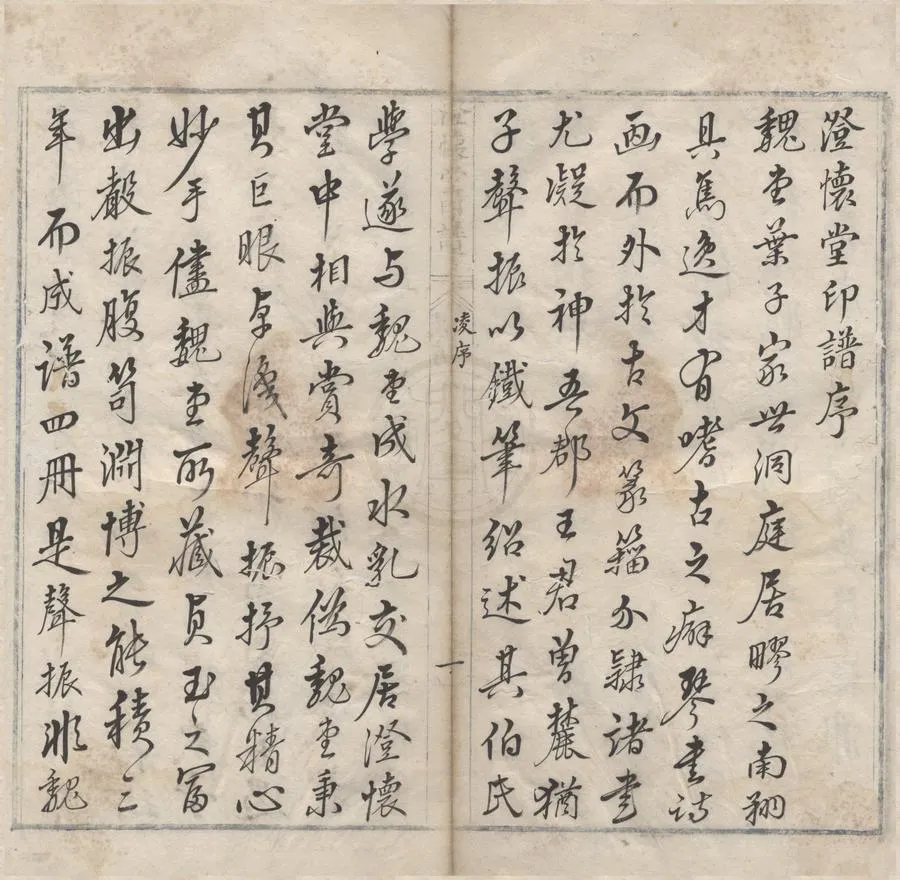 澄懷堂印譜序
魏堂葉子家世洞庭居膠之南翔
具雋逸才有嗜古之癖琴書詩
畫而外於古文篆籀分隸諸書
尤凝於神吾郡王君曾麓猶
子聲振以鐵筆紹述其伯氏
凌序
一
學遂与魏堂成水乳交居澄懷
堂中相與賞奇裁僞魏堂秉
其巨眼卓識聲振抒其精心
妙手儘魏堂所藏貞玉之富
出聲振腹笥淵博之能積三
年而成譜四冊是聲振非魏